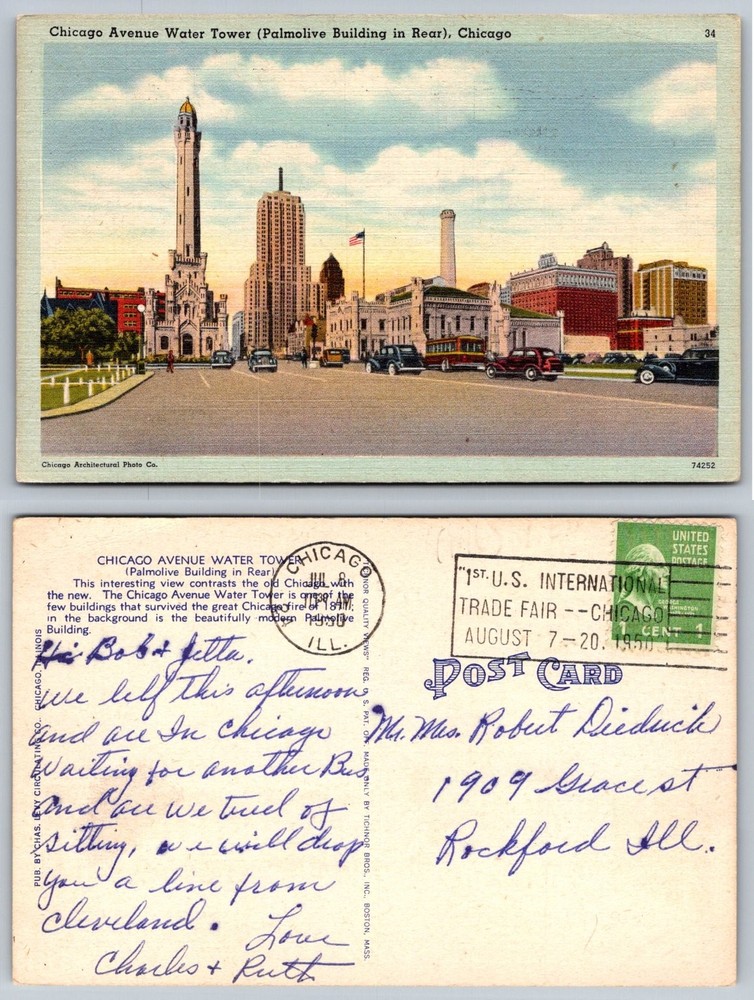 Chicago Avenue Water Tower (Palmolive Building in Rear), Chicago
34
Chicago Architectural Photo Co.
74252
CHICAGO AVENUE WATER TOWER
(Palmolive Building in Rear)
This interesting view contrasts the old Chicago with
the new. The Chicago Avenue Water Tower is one of the
few buildings that survived the great Chicago fire of 1871;
in the background is the beautifully modern Palmolive
Building.
CHICAGO
JUL 8
AM
1950
ILL.
"1ST. U.S. INTERNATIONAL
TRADE FAIR -- CHICAGO
AUGUST 7-20, 1950
UNITED
STATES
POSTAGE
GEORGE
WASHINGTON
CENT 1
POST CARD
Hi Bob & Jetta.
we left this afternoon
and are In Chicago
waiting for another Bus
and are we tired of
sitting, we will drop
you a line from
Cleveland.
Love
Charles + Ruth
Mr. Mrs. Robert Diedrich
1909 Grace st
Rockford Ill.
PUB. BY CHAS. LEVY CIRCULATING CO., CHICAGO, ILLINOIS
QUALITY VIEWS" REG. U. S. PAT. OFF. MADE ONLY BY TICHNOR BROS., INC., BOSTON, MASS.